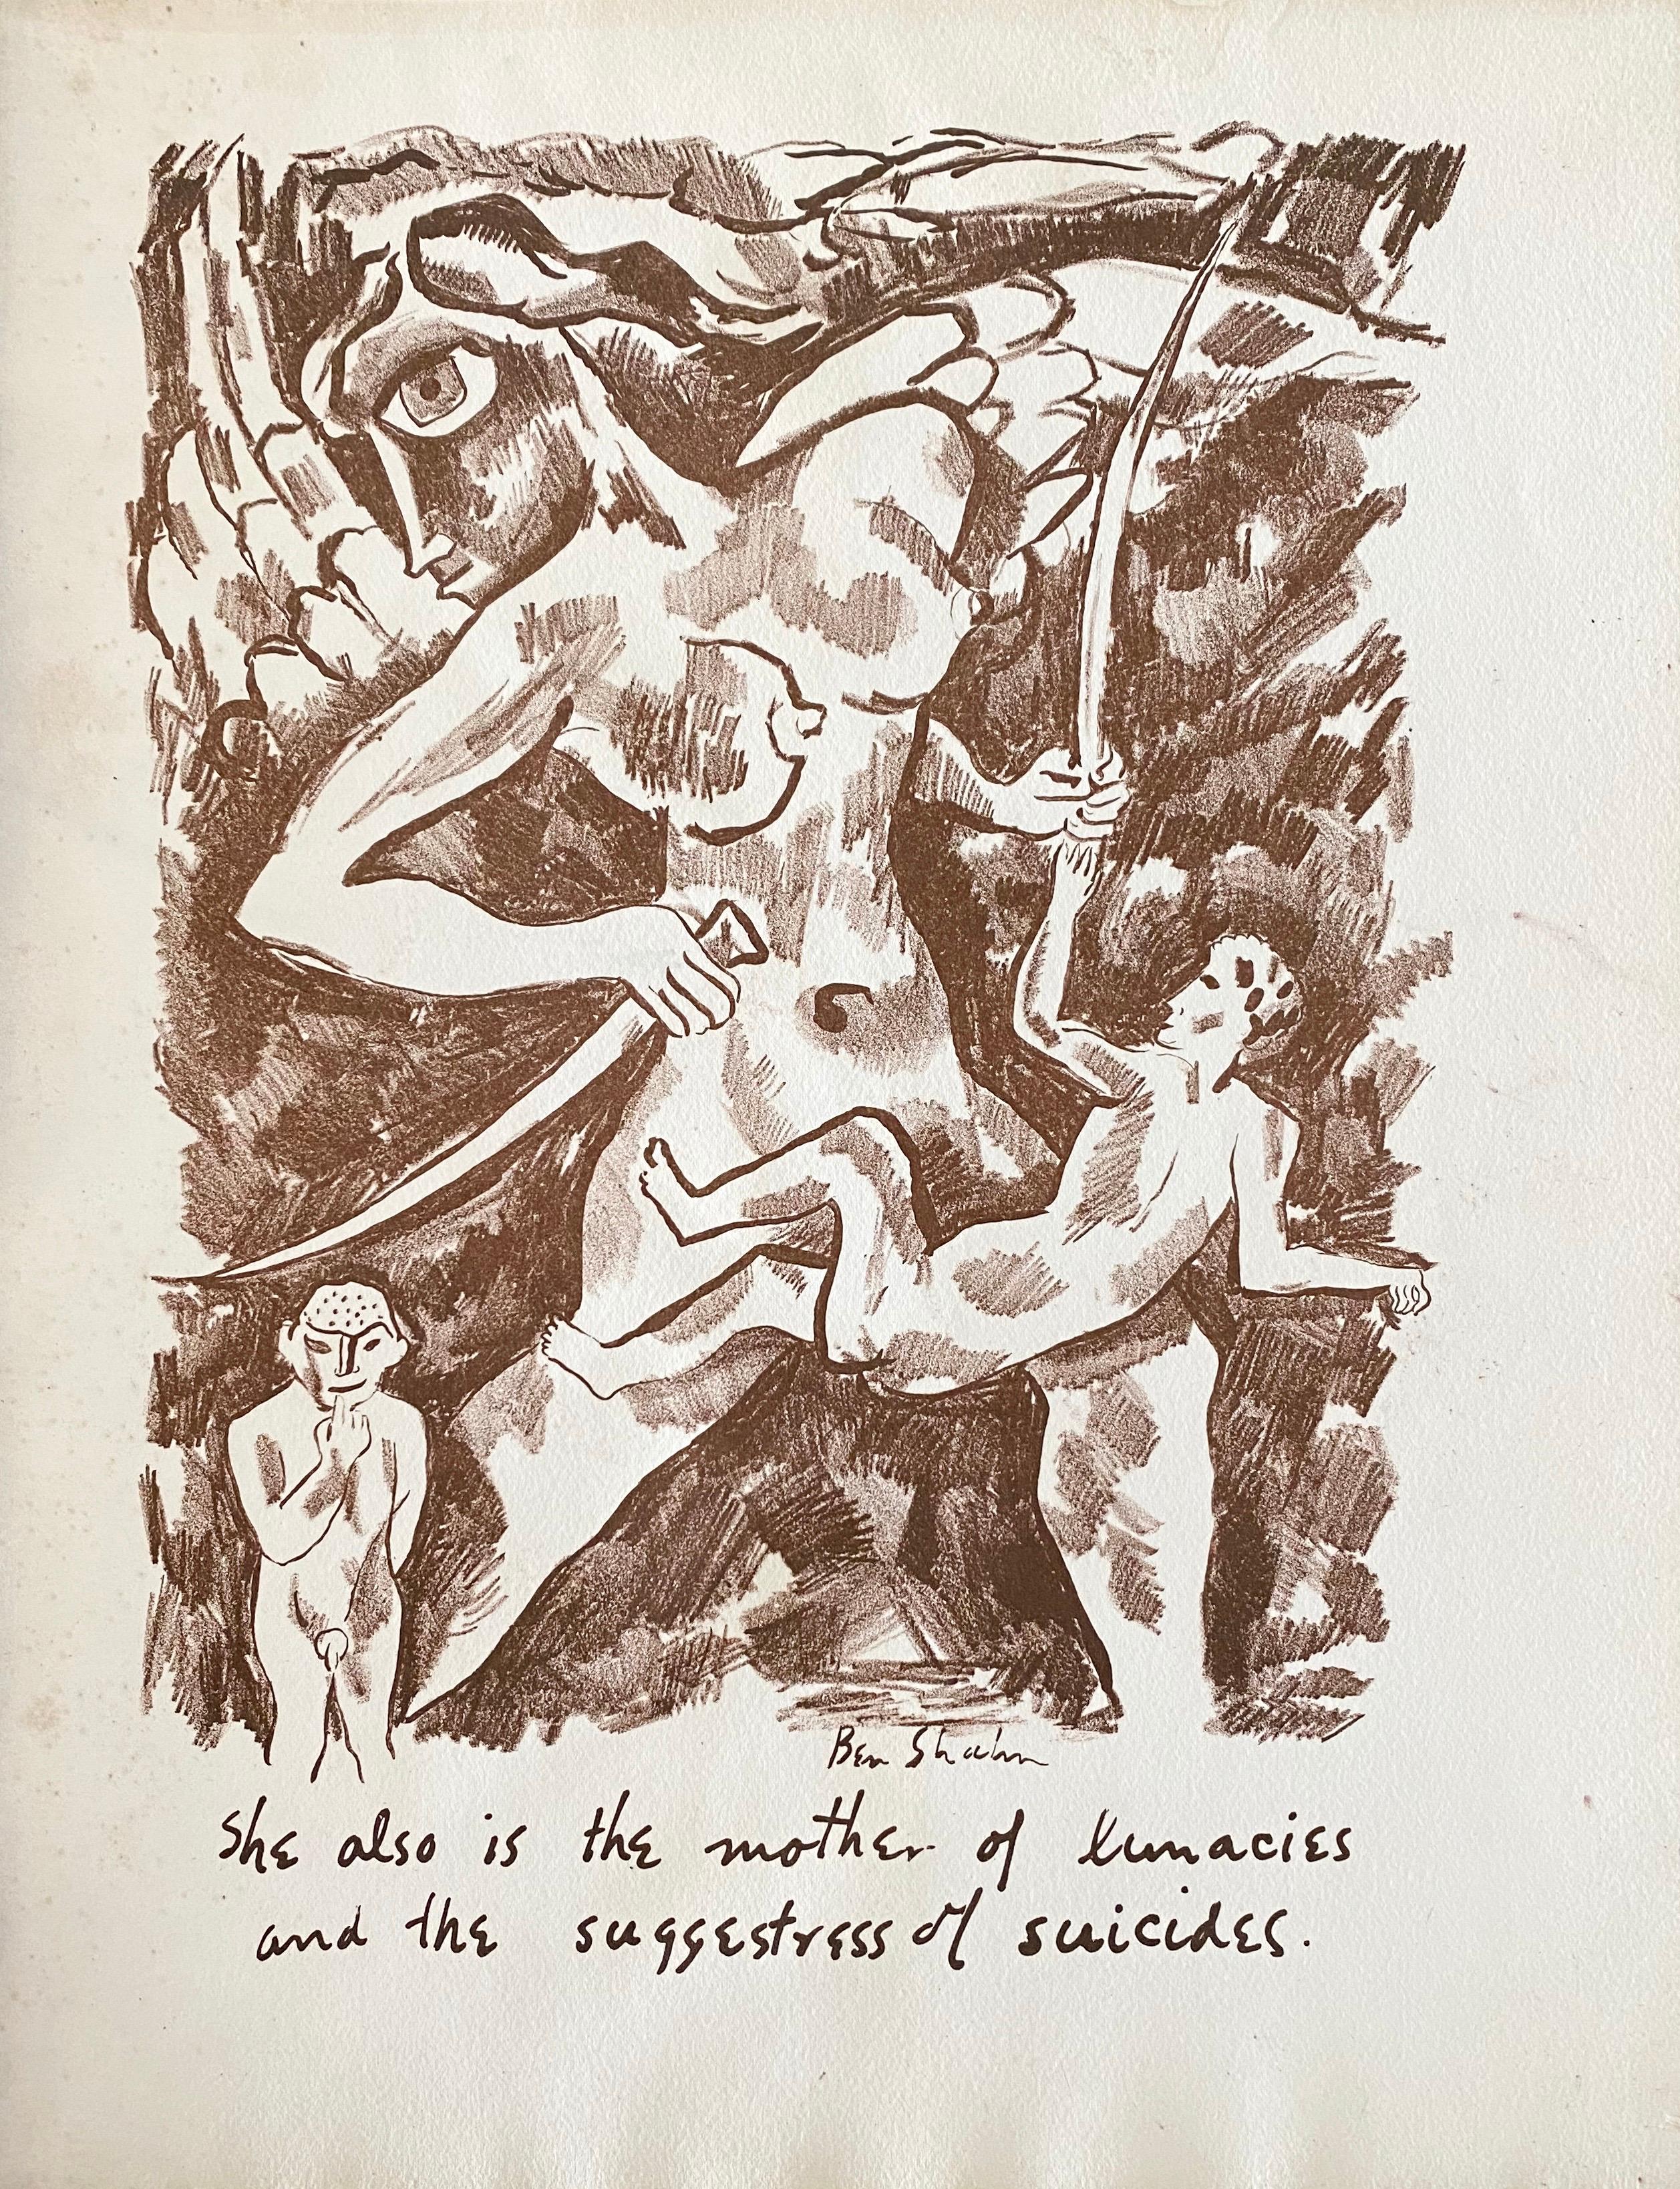 Ben Shahn
She also is the mother of lunacies
and the suggestress of suicides.